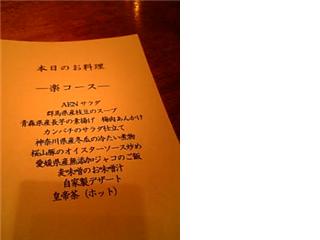 本日のお料理
―楽コース―
AENサラダ
群馬県産枝豆のスープ
青森県産長芋の素揚げ 梅肉あんかけ
カンパチのサラダ仕立て
神奈川県産冬瓜の冷たい煮物
桜山豚のオイスターソース炒め
愛媛県産無添加ジャコのご飯
麦味噌のお味噌汁
自家製デザート
皇帝茶（ホット）